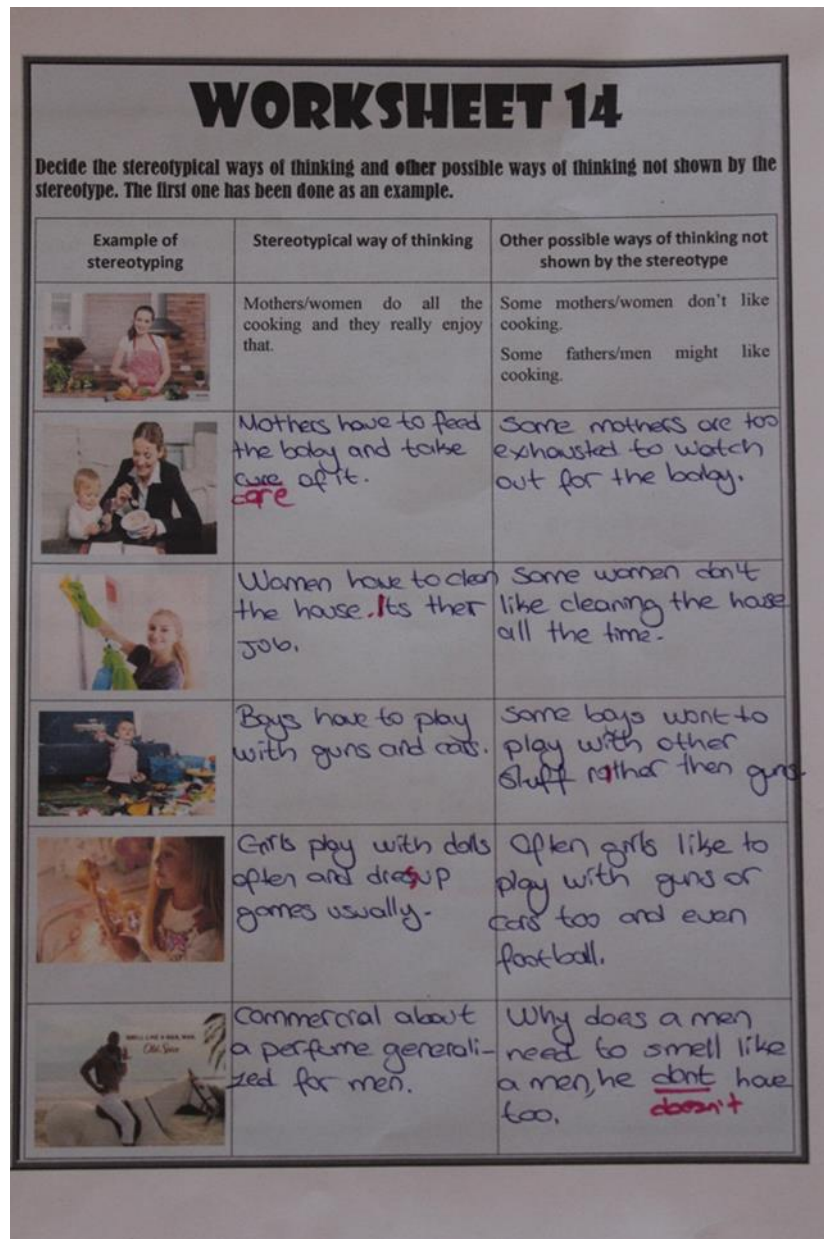 WORKSHEET 14
Decide the stereotypical ways of thinking and other possible ways of thinking not shown by the
stereotype. The first one has been done as an example.
Example of
stereotyping
Stereotypical way of thinking
Other possible ways of thinking not
shown by the stereotype
Mothers/women do all the
cooking and they really enjoy
that.
Some mothers/women don't like
cooking.
Some fathers/men might like
cooking.
Mothers have to feed
the baby and take
cure of it.
care
Some mothers are too
exhausted to watch
out for the baby.
Women have to clean
the house. Its ther
Job.
Some women don't
like cleaning the house
all the time.
Boys have to play
with guns and cars.
Some boys want to
play with other
stuff rather then guns
Girls play with dolls
often and dressup
games usually.
Often girls like to
play with guns or
cars too and even
football.
SMELL LIKE A MAN, MAN.
Old Spice
Commercial about
a perfume generali-
zed for men.
Why does a men
need to smell like
a men, he dont have
doesn't
too.